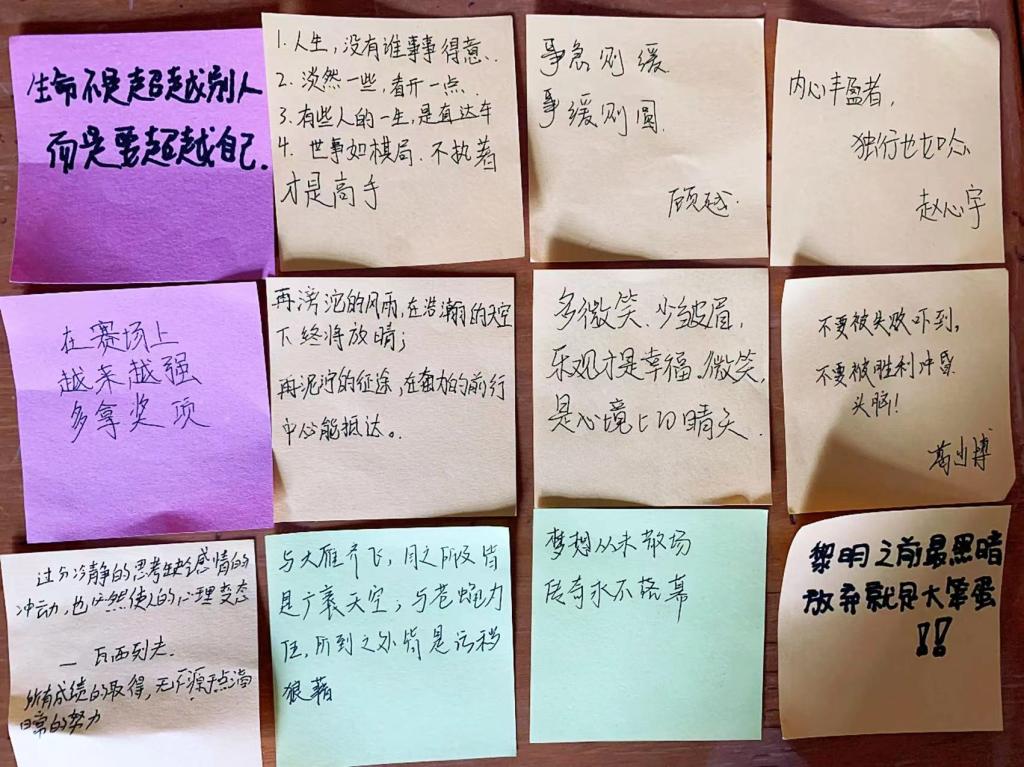 生命不是超越别人
而是要超越自己.
1. 人生，没有谁事事得意.
2. 淡然一些，看开一点.
3. 有些人的一生，是直达车
4. 世事如棋局.不执着
才是高手
事急则缓
事缓则圆.
顾越.
内心丰盈者，
独行也如众
赵心宇
在赛场上
越来越强
多拿奖项
再滂沱的风雨，在浩瀚的天空
下终将放晴；
再泥泞的征途，在奋力的前行
中必能抵达。.
多微笑、少皱眉，
乐观才是幸福.微笑，
是心境上的晴天.
不要被失败吓到，
不要被胜利冲昏
头脑！
葛山博
过分冷静的思考缺乏感情的
冲动，也必然使人的心理变态
— 瓦西列夫.
所有成绩的取得，无不源于点滴
日常的努力
与大雁齐飞，目之所及皆
是广袤天空；与苍蝇为
伍，所到之处皆是污秽
狼藉
梦想从未散场
传奇永不落幕
黎明之前最黑暗
放弃就是大笨蛋
!!